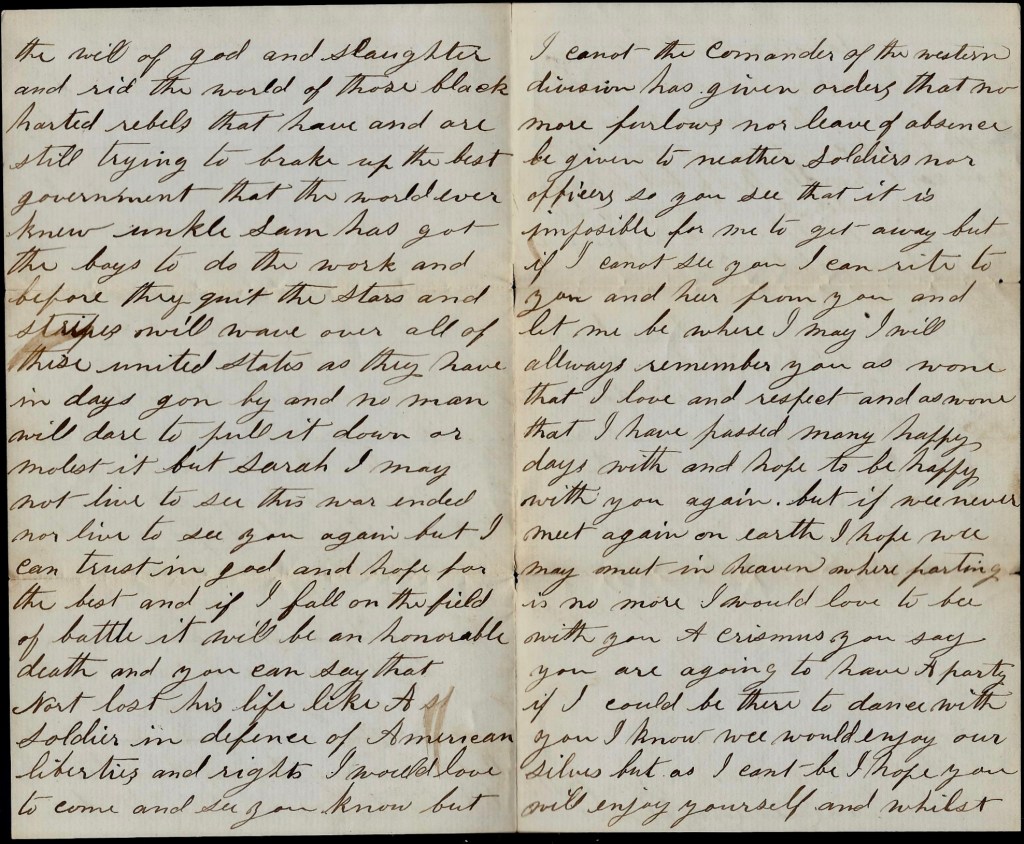 the will of god and slaughter
and rid the world of those black
harted rebels that have and are
still trying to brake up the best
government that the world ever
knew unkle Sam has got
the boys to do the work and
before they quit the stars and
stripes will wave over all of
these united states as they have
in days gon by and no man
will dare to pull it down or
molest it but Sarah I may
not live to see this war ended
nor live to see you again but I
can trust in god and hope for
the best and if I fall on the field
of battle it will be an honorable
death and you can say that
Nort lost his life like A
Soldier in defence of American
liberties and rights I would love
to come and see you know but
I canot the Comander of the western
division has given orders that no
more furlows nor leave of absence
be given to neather Soldiers nor
officers so you see that it is
imposible for me to get away but
if I canot see you I can rite to
you and heer from you and
let me be where I may I will
allways remember you as wone
that I love and respect and as wone
that I have passed many happy
days with and hope to be happy
with you again. but if wee never
meet again on earth I hope wee
may meet in heaven where parting
is no more I would love to bee
with you A Crismus you say
you are agoing to have A party
if I could be there to dance with
you I know wee would enjoy our
silves but as I cant be I hope you
will enjoy yourself and whilst